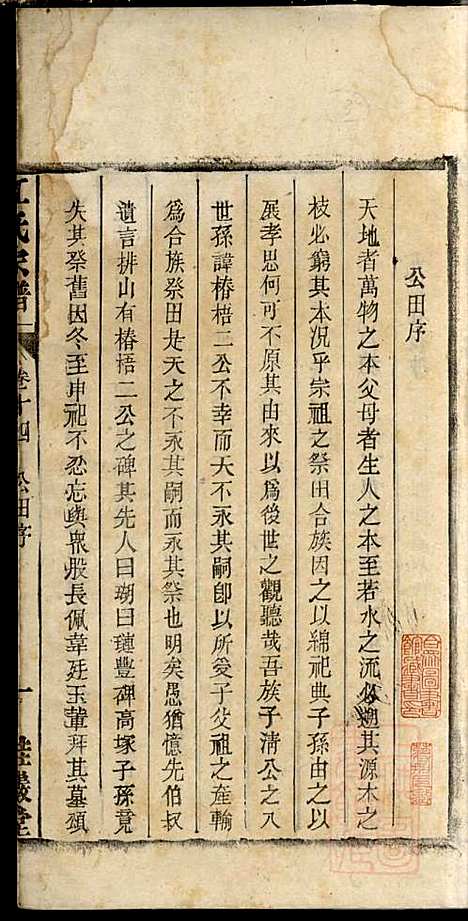 公田序
天地者萬物之本父母者生人之本至若水之流必溯其源木之
枝必窮其本况乎宗祖之祭田合族因之以綿祀典子孫由之以
展孝思何可不原其由來以為後世之觀聽哉吾族子清公之八
世孫諱椿梧二公不幸而天不永其嗣卽以所受子父祖之產輸
為合族祭田是天之不永其嗣而永其祭也明矣愚猶憶先伯叔
遺言排山有椿梧二公之碑其先人曰瑚曰璉豐碑高塚子孫竟
失其祭舊因冬至申祀不忍忘與衆股長佩韋廷玉輩拜其墓頌
氏宗譜
卷十四 公田序
一